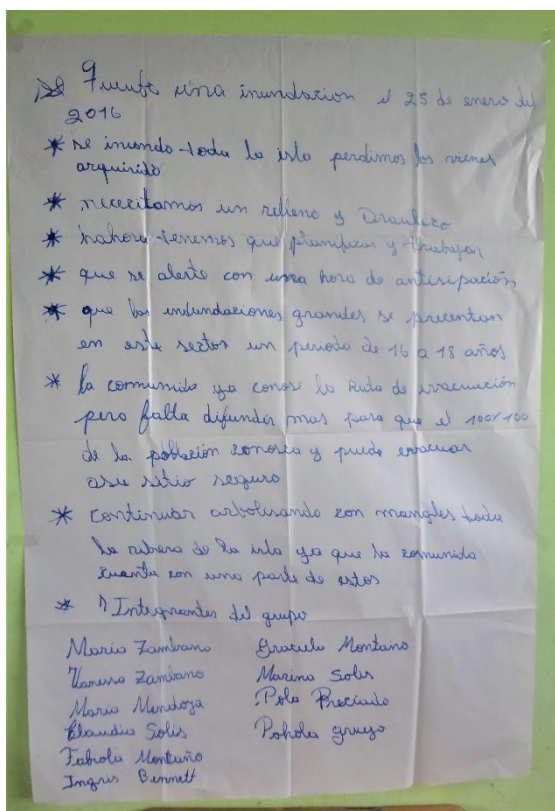 una inundacion el 25 de enero del
2016
* se inundo toda la isla perdimos los vienes
arquirido
* nececitamos un relleno y Draulico
* hahora tenemos que planificar y trabajar
* que se alerte con una hora de antisipación
* que las indundaciones grandes se precentan
en este sector un periodo de 16 a 18 años
* la comunida ya conose la Ruta de evacuación
pero falta difundir mas para que el 100%100
de la población conosca y pueda evacuar
asu sitio seguro
* continuar arbolisando con mangles toda
la ribera de la isla ya que la comunida
cuenta con una parte de estos
* Integrantes del grupo
Maria Zambano Graciela Montaño
Vanessa Zambano Marina Solis
Maria Mendoza Pola Preciado
Claudia Solis Pohola
Fabiola Montaño
Ingris Bennett